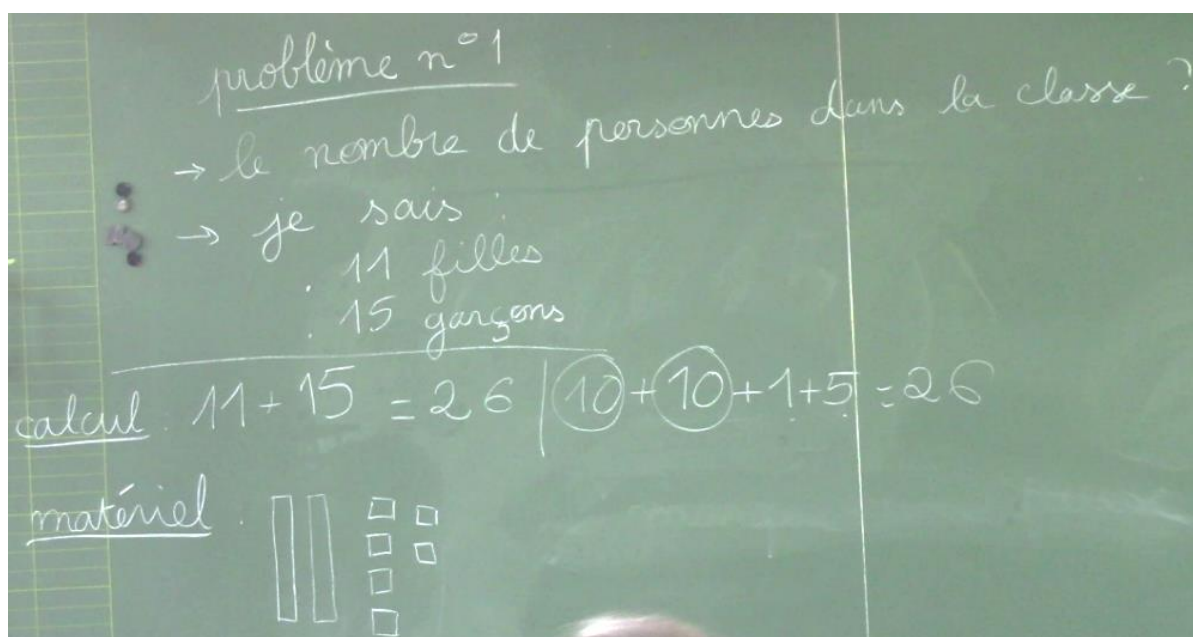 problème n°1
→ le nombre de personnes dans la classe ?
→ je sais :
. 11 filles
. 15 garçons
calcul. 11 + 15 = 26 | 10 + 10 + 1 + 5 = 26
matériel.